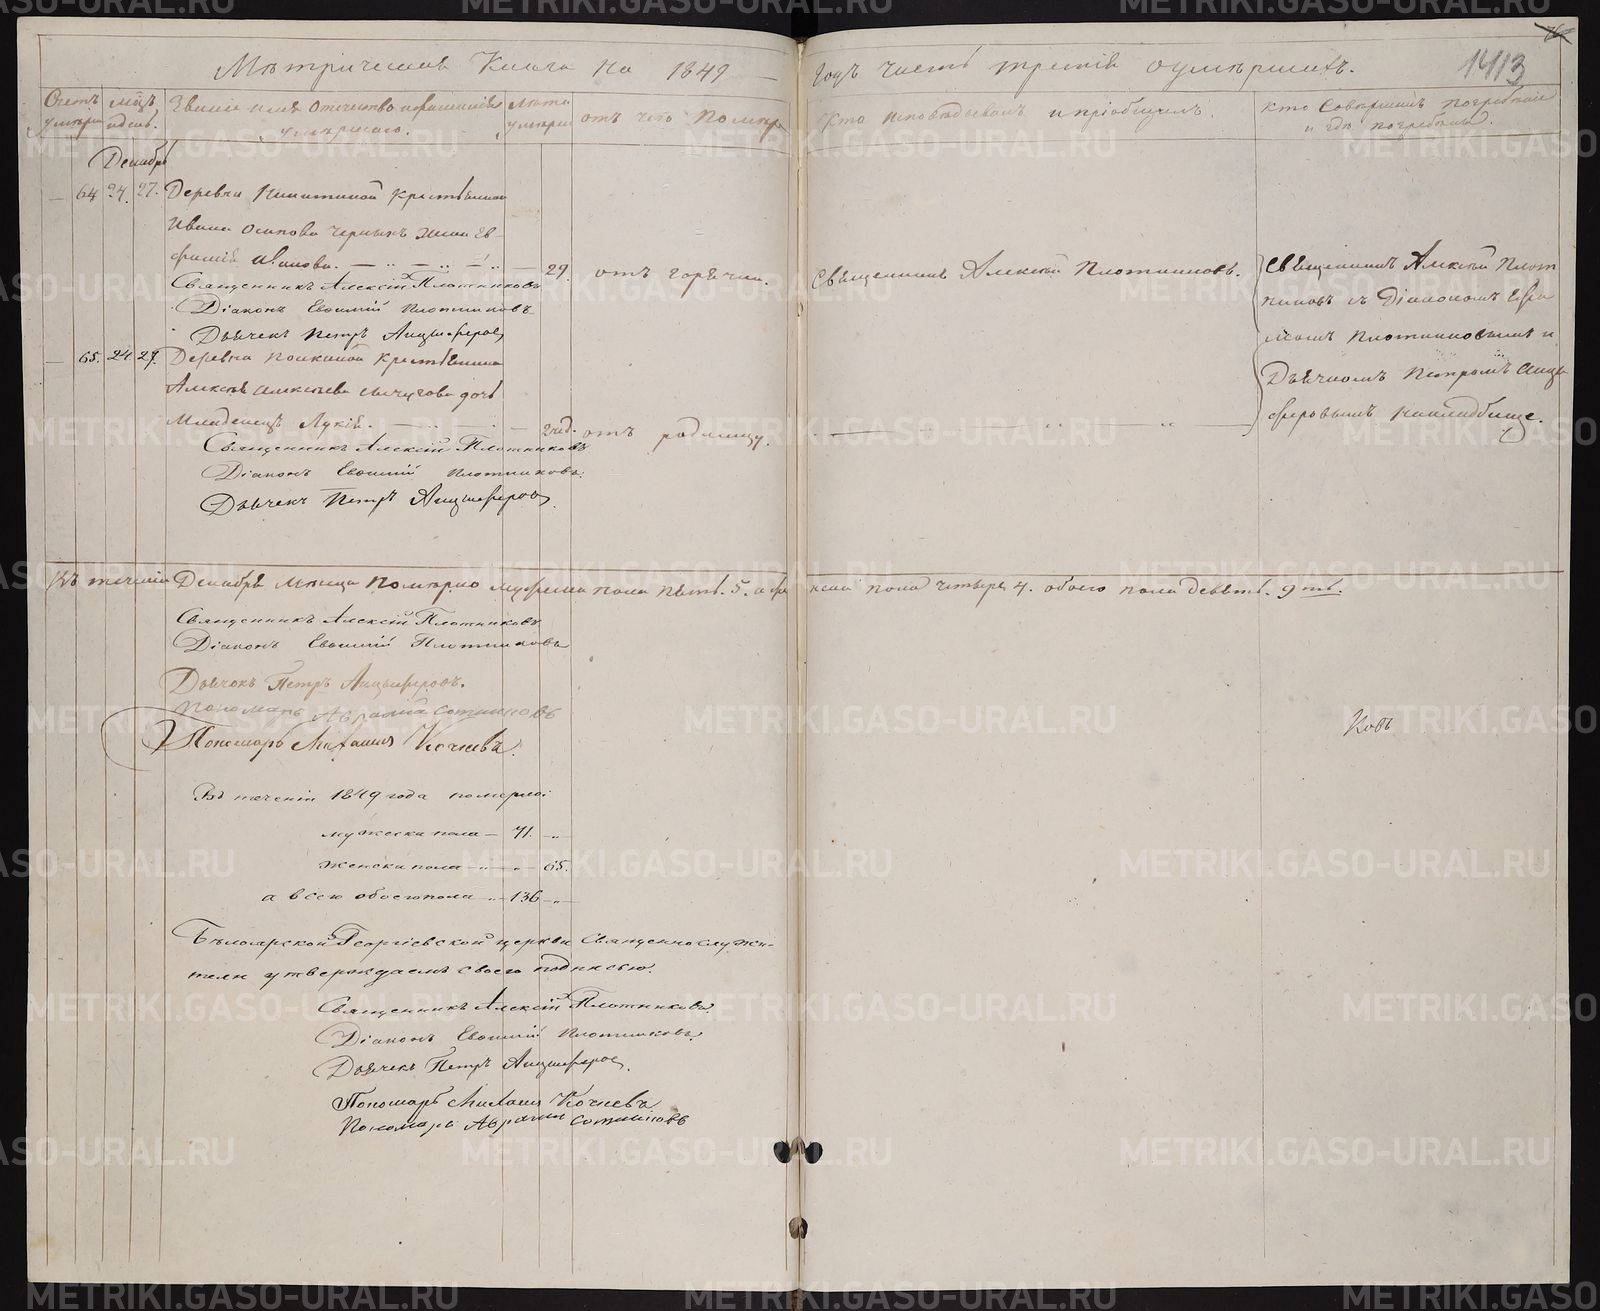 Метрическая Книга на 1849 – годъ часть третія о умершихъ.
1413
Счетъ умерш
мѣсц. и день.
Званіе имя отечество и фамилія умершаго.
Лѣта умерш
отъ чего Помер
Кто исповѣдывалъ и пріобщилъ.
Кто Совершилъ погребеніе и гдѣ погребены.
Декабрь
64 24. 27. Деревни Никитиной крестьянина
Ивана Осипова Черныхъ жена Ев-
фимія Иванова. 29. отъ горячки. Священникъ Алексій Плотниковъ.
Священникъ Алексій Плотниковъ
Діаконъ Евѳимій Плотниковъ
Дьячекъ Петръ Анцыферовъ
Священникъ Алексій Плот
никовъ съ Діакономъ Евфи
міемъ Плотниковымъ и
Дьячкомъ Петромъ Анцы
феровымъ на кладбище.
65. 24 27. Деревни крестьянина
Алексѣя Алексѣева Сычугова дочь
Младенецъ Лукія. 2 нед. отъ родимцу.
Священникъ Алексій Плотниковъ
Діаконъ Евѳимій Плотниковъ.
Дьячекъ Петръ Анцыферовъ.
Въ теченіи Декабря Мѣсяца Померло мужеска пола пять. 5. а женска пола четыре 4. обоего пола девять. 9ть.
Священникъ Алексій Плотниковъ
Діаконъ Евѳимій Плотниковъ
Дьячокъ Петръ Анцыферовъ.
Пономарь Аврамій Сотниковъ
Пономарь Михаилъ Кочневъ.
Ковъ
Въ теченіи 1849 года померло:
мужеска пола – 71.
женска пола 65.
а всего обоего пола 136
Бѣлоярской Георгіевской церкви Священнослужи-
тели утверждаемъ своего подписью.
Священникъ Алексій Плотниковъ.
Діаконъ Евѳимій Плотниковъ.
Дьячекъ Петръ Анцыферовъ.
Пономарь Михаилъ Кочневъ
Пономарь Аврамій Сотниковъ
METRIKI.GASO-URAL.RU